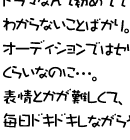 ドラマなんて初めてで
わからないことばかり。
オーディションではセリ
くらいなのに・・・。
表情とかが難しくて、
毎日ドキドキしながら